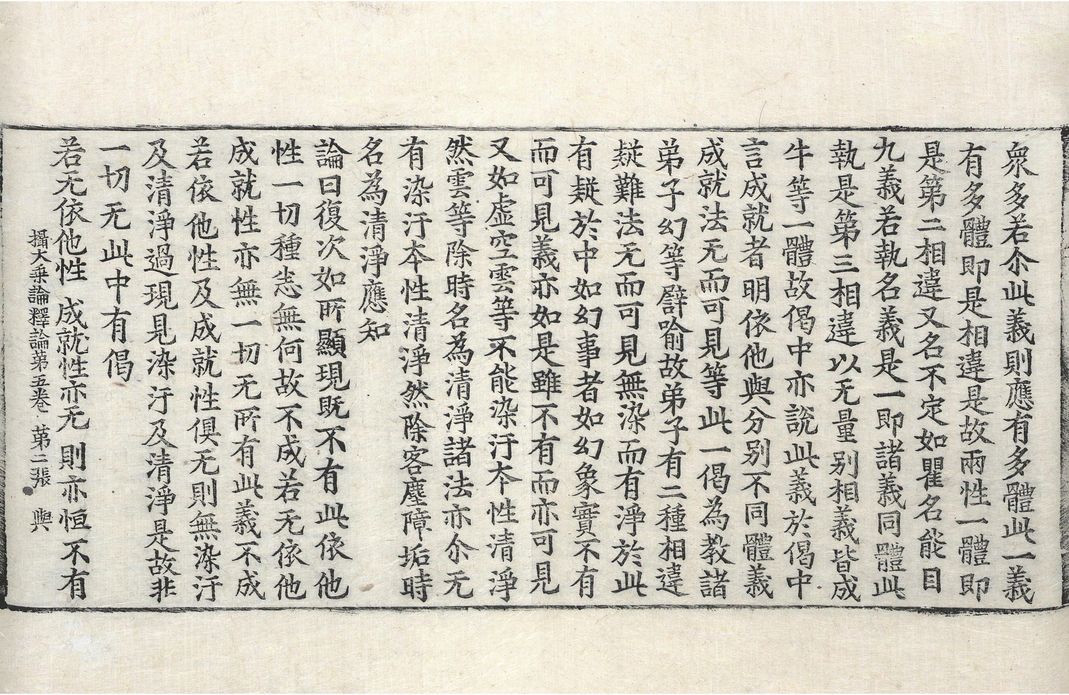 衆多若尒此義則應有多體此一義
有多體即是相違是故兩性一體即
是第二相違又名不定如瞿名能目
九義若執名義是一即諸義同體此
執是第三相違以无量别相義皆成
牛等一體故偈中亦說此義於偈中
言成就者明依他與分别不同體義
成就法无而可見等此一偈為教諸
弟子幻等譬喻故弟子有二種相違
疑難法无而可見無染而有淨於此
有疑於中如幻事者如幻象實不有
而可見義亦如是雖不有而亦可見
又如虚空雲等不能染汙夲性清淨
然雲等除時名為清淨諸法亦尒无
有染汙夲性清淨然除客塵障垢時
名為清淨應知
論曰復次如所顯現既不有此依他
性一切種悉無何故不成若无依他
成就性亦無一切无所有此義不成
若依他性及成就性俱无則無染汙
及清淨過現見染汙及清淨是故非
一切无此中有偈
若无依他性 成就性亦无 則亦恒不有
攝大乗論釋論第五卷 第二張 興